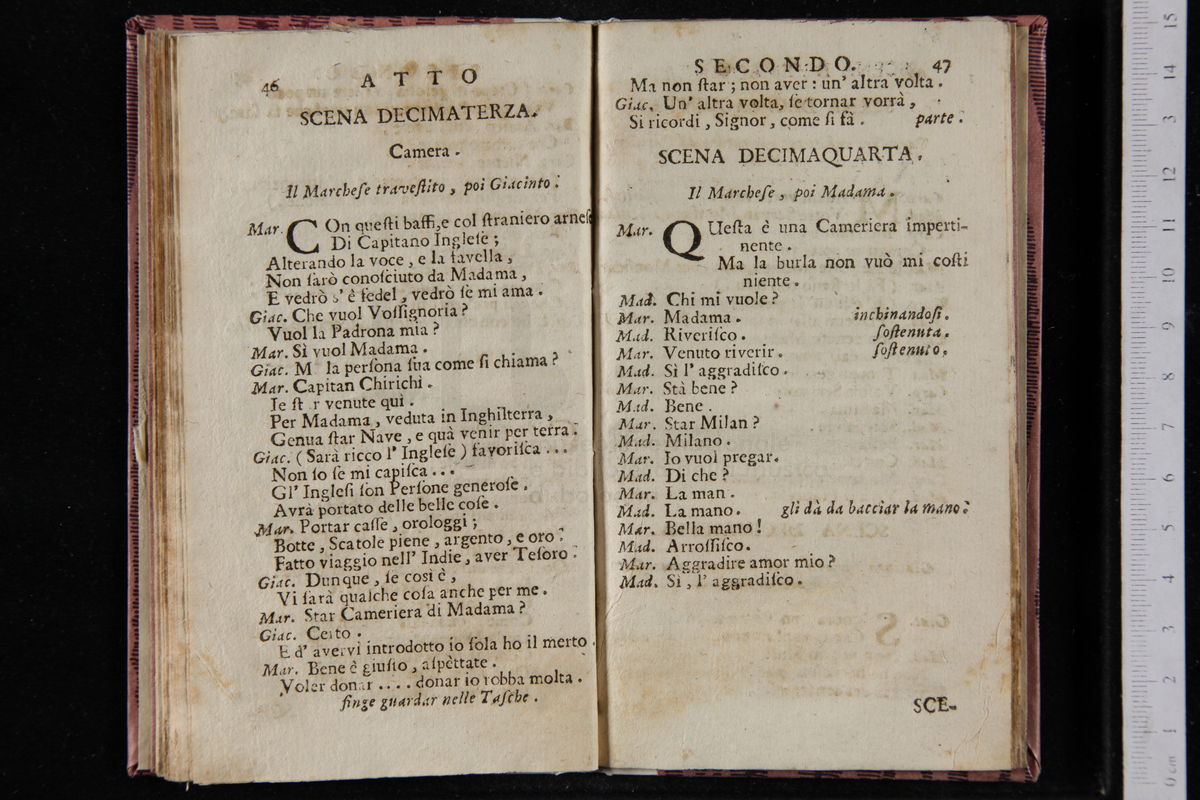 46 ATTO
SCENA DECIMATERZA.
Camera.
Il Marcheſe traveſtito, poi Giacinto.
Mar. COn queſti baffi, e col ſtraniero arneſe
Di Capitano Ingleſe;
Alterando la voce, e la favella,
Non ſarò conoſciuto da Madama,
E vedrò s' è fedel, vedrò ſe mi ama.
Giac. Che vuol Voſſignoria?
Vuol la Padrona mia?
Mar. Sì vuol Madama.
Giac. M la perſona ſua come ſi chiama?
Mar. Capitan Chirichi.
Ie ſt r venute qui.
Per Madama, veduta in Inghilterra,
Genua ſtar Nave, e quà venir per terra.
Giac. (Sarà ricco l' Ingleſe) favoriſca...
Non ſo ſe mi capiſca...
Gl' Ingleſi ſon Perſone generoſe.
Avrà portato delle belle coſe.
Mar. Portar caſſe, orologgi;
Botte, Scatole piene, argento, e oro:
Fatto viaggio nell' Indie, aver Teſoro:
Giac. Dunque, ſe così è,
Vi ſarà qualche coſa anche per me.
Mar. Star Cameriera di Madama?
Giac. Certo.
E d' avervi introdotto io ſola ho il merto.
Mar. Bene è giuſto, aſpèttate.
Voler donar.... donar io robba molta.
finge guardar nelle Taſche.
SECONDO. 47
Ma non ſtar; non aver: un' altra volta.
Giac. Un' altra volta, ſe tornar vorrà,
Si ricordi, Signor, come ſi fà. parte.
SCENA DECIMAQUARTA.
Il Marcheſe, poi Madama.
Mar. QUeſta è una Cameriera imperti-
nente.
Ma la burla non vuò mi coſti
niente.
Mad. Chi mi vuole?
Mar. Madama. inchinandoſi.
Mad. Riveriſco. ſoſtenuta.
Mar. Venuto riverir. ſoſtenuto.
Mad. Sì l' aggradiſco.
Mar. Stà bene?
Mad. Bene.
Mar. Star Milan?
Mad. Milano.
Mar. Io vuol pregar.
Mad. Di che?
Mar. La man.
Mad. La mano. gli dà da bacciar la mano.
Mar. Bella mano!
Mad. Arroſſiſco.
Mar. Aggradire amor mio?
Mad. Sì, l' aggradiſco.
SCE-
0 cm 1 2 3 4 5 6 7 8 9 10 11 12 13 14 15